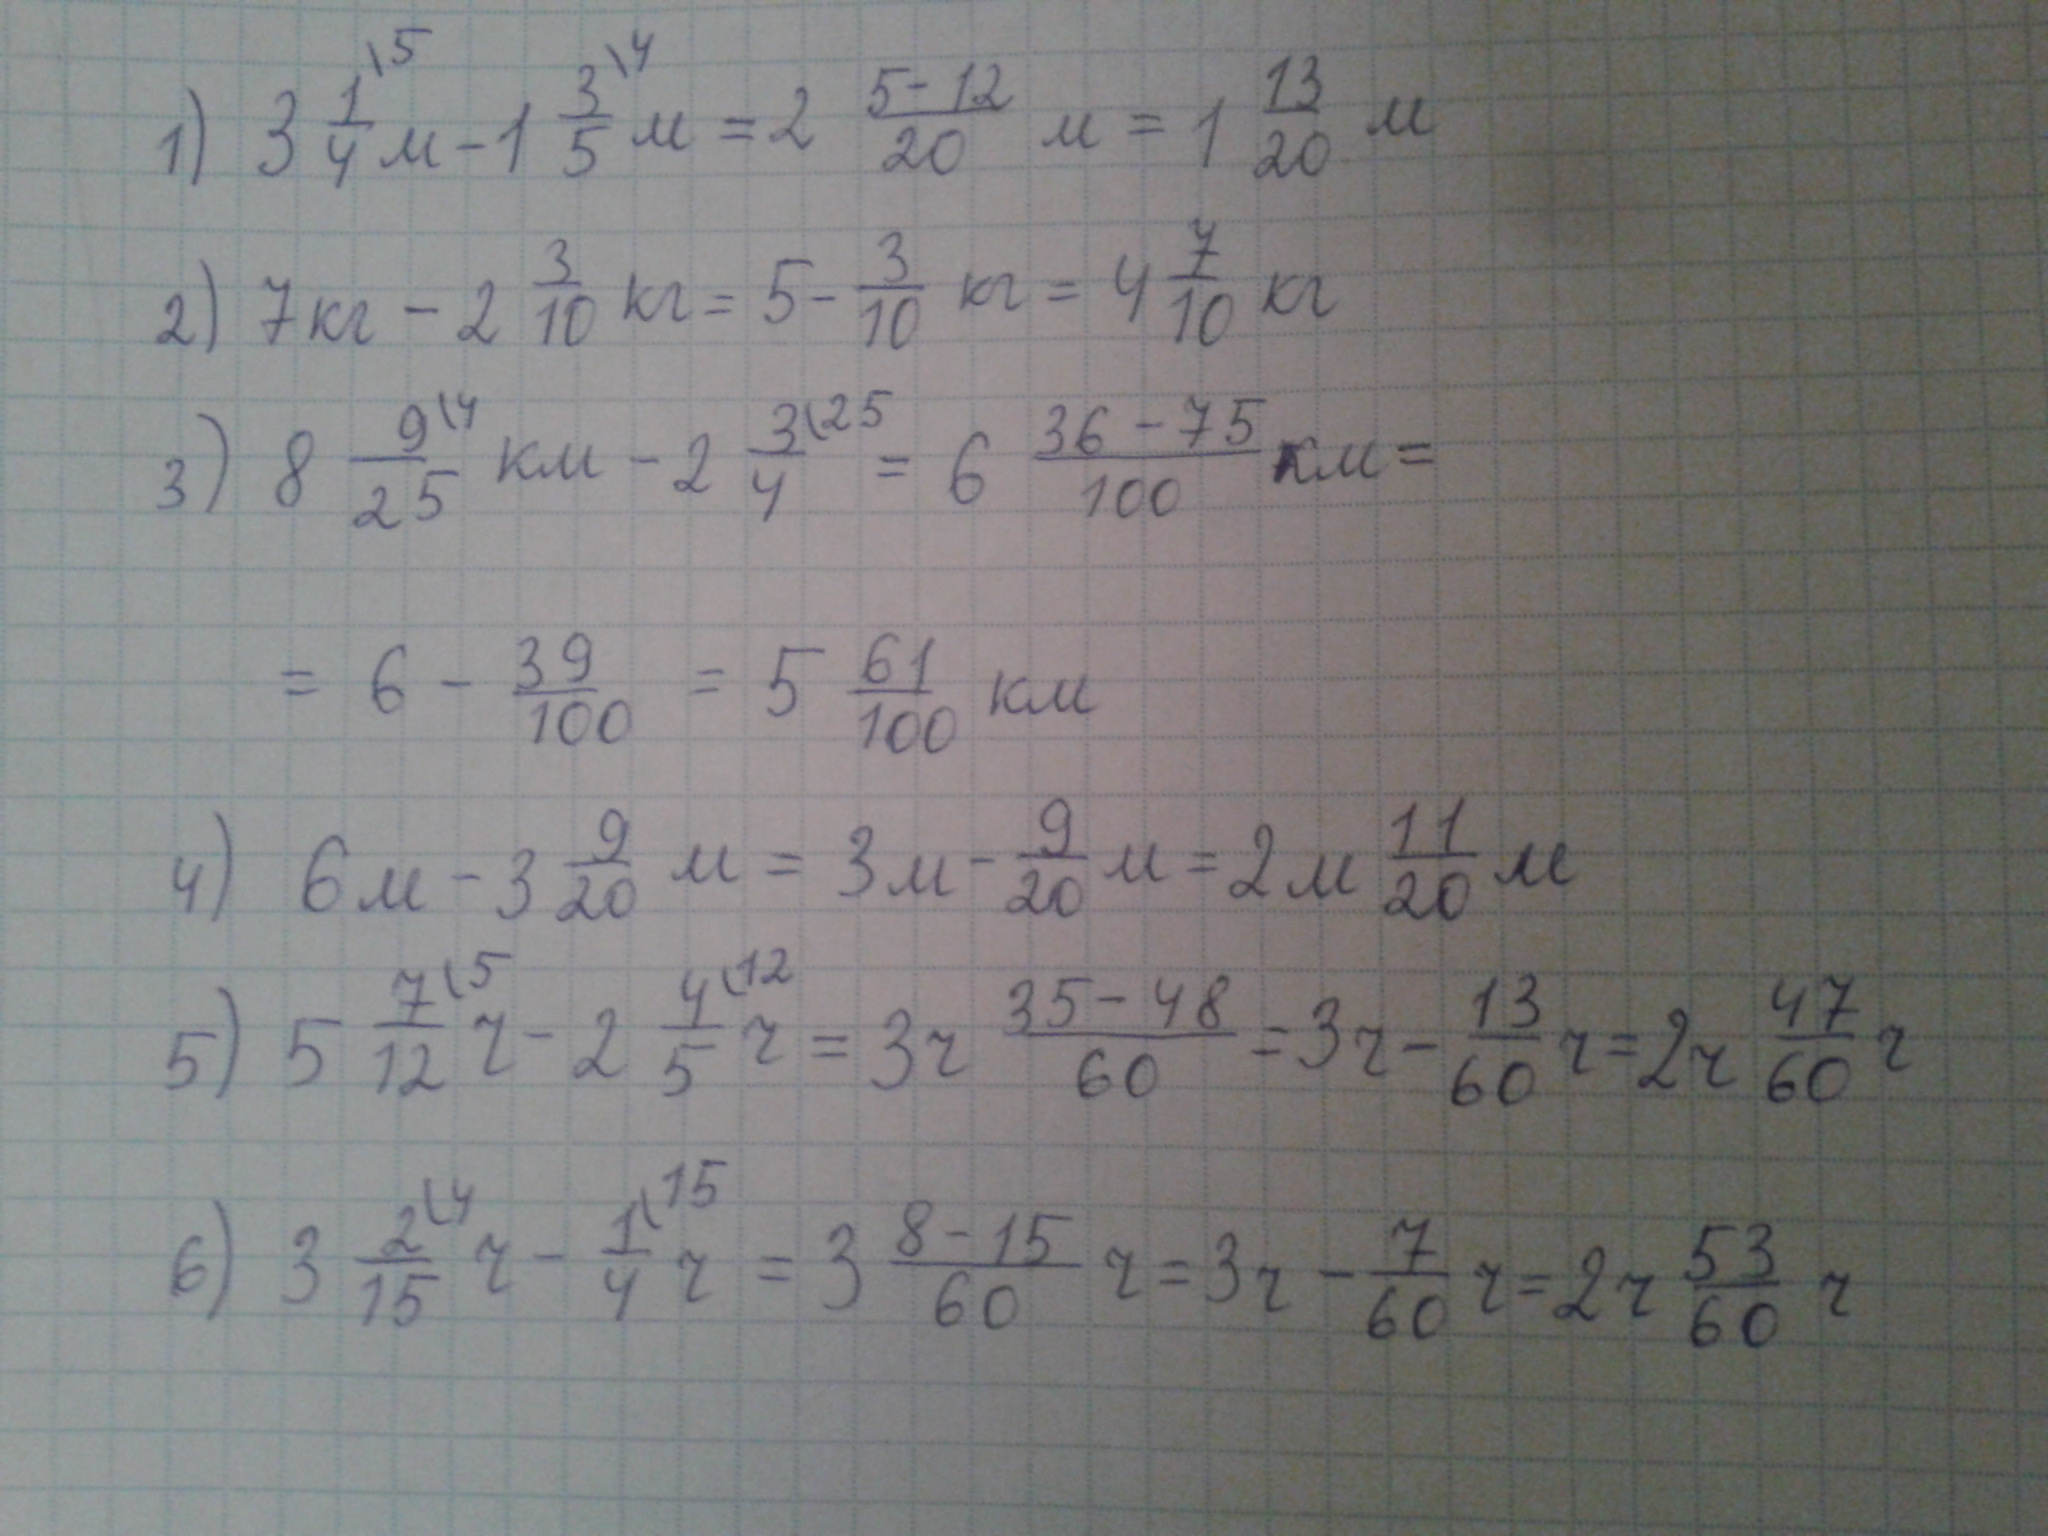 1) 3 1/4 \5 м - 1 3/5 \4 м = 2 (5-12)/20 м = 1 13/20 м
2) 7кг - 2 3/10 кг = 5 - 3/10 кг = 4 7/10 кг
3) 8 9/25 \4 км - 2 3/4 \25 = 6 (36-75)/100 км =
= 6 - 39/100 = 5 61/100 км
4) 6м - 3 9/20 м = 3м - 9/20 м = 2м 11/20 м
5) 5 7/12 \5 ч - 2 4/5 \12 ч = 3ч (35-48)/60 = 3ч - 13/60 ч = 2ч 47/60 ч
6) 3 2/15 \4 ч - 1/4 \15 ч = 3 (8-15)/60 ч = 3ч - 7/60 ч = 2ч 53/60 ч